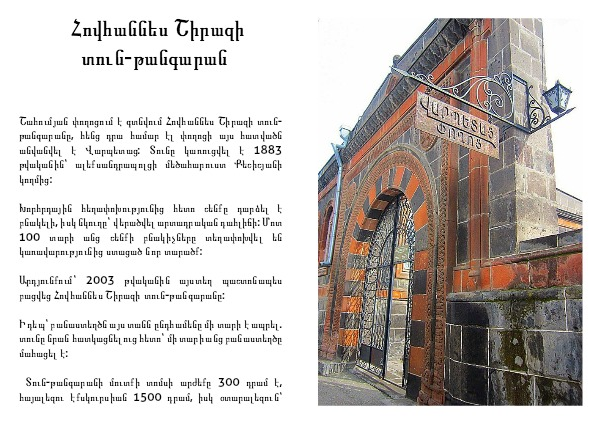 Հովհաննես Շիրազի
տուն-թանգարան
Շահումյան փողոցում է գտնվում Հովհաննես Շիրազի տուն-
թանգարանը, հենց դրա համար էլ փողոցի այս հատվածն
անվանվել է Վարպետաց: Տունը կառուցվել է 1883
թվականին՝ ալեքսանդրապոլցի մեծահարուստ Քեշիշյանի
կողմից:
Խորհրդային հեղափոխությունից հետո շենքը դարձել է
բնակելի, իսկ նկուղը՝ վերածվել արտադրական դահլինի: Մոտ
100 տարի անց շենքի բնակիչները տեղափոխվել են
կառավարությունից ստացած նոր տարածք:
Արդյունքում՝ 2003 թվականին այստեղ պաշտոնապես
բացվեց Հովհաննես Շիրազի տուն-թանգարանը:
Ի դեպ՝ բանաստեղծն այս տանն ընդհամենը մի տարի է ապրել.
տունը նրան հատկացնելուց հետո՝ մի տարի անց բանաստեղծը
մահացել է:
Տուն-թանգարանի մուտքի տոմսի արժեքը 300 դրամ է,
հայալեզու էքսկուրսիան 1500 դրամ, իսկ օտարալեզուն՝
ՎԱՐՊԵՏԱՑ
ՓՈՂՈՑ